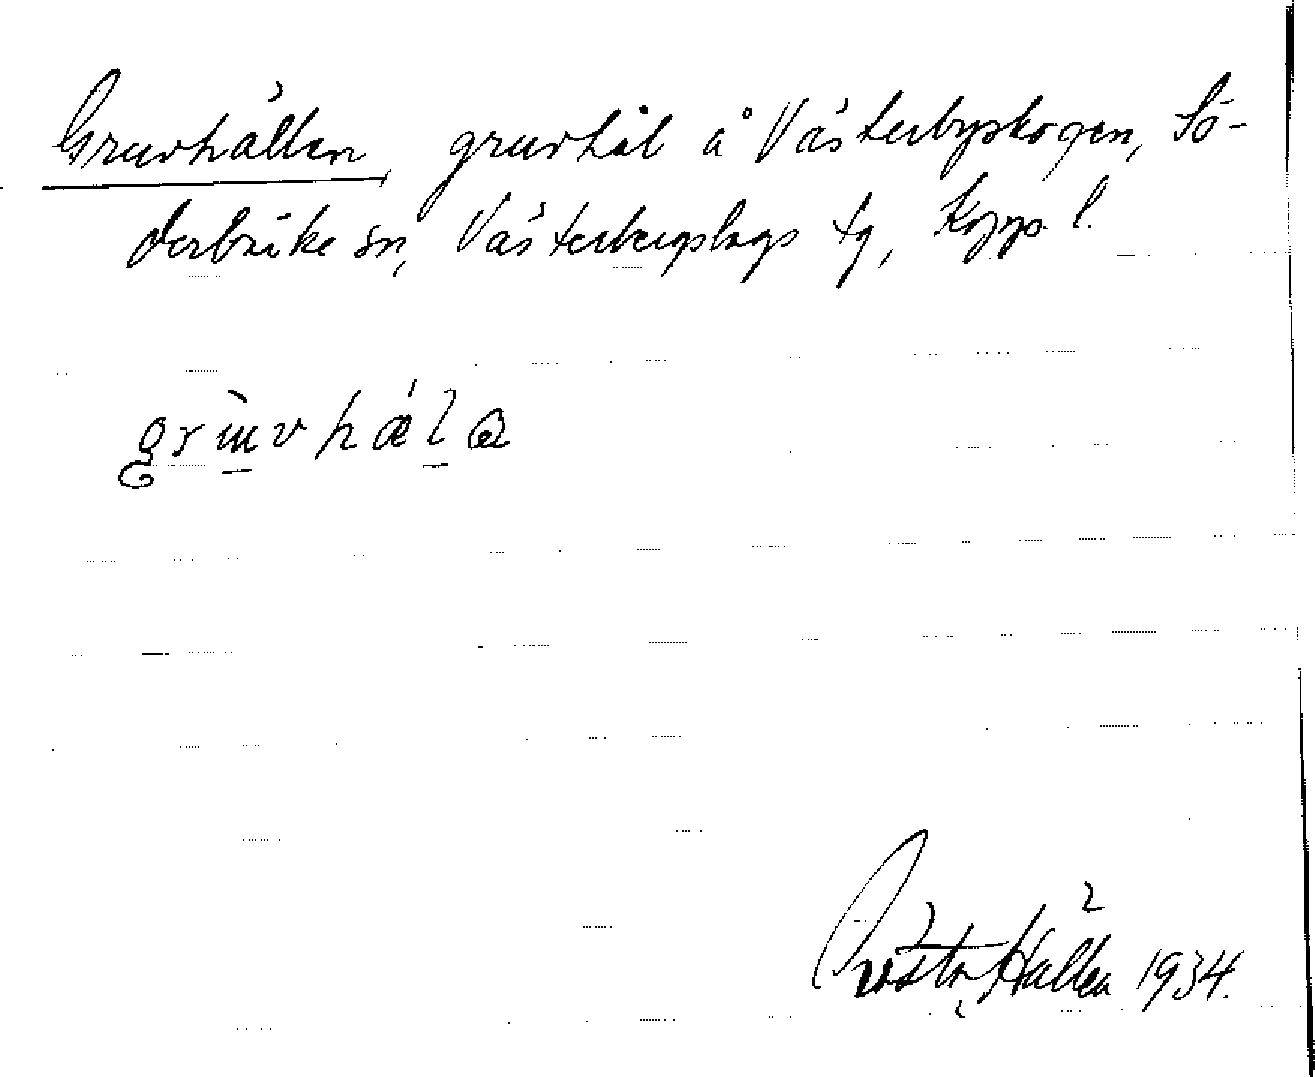 Gruvhällen gruvhål å Västerbyskogen, Sö-
derbärke sn, Västerbergslags tg, Kopp. l.
Gösta Hallén 1934.